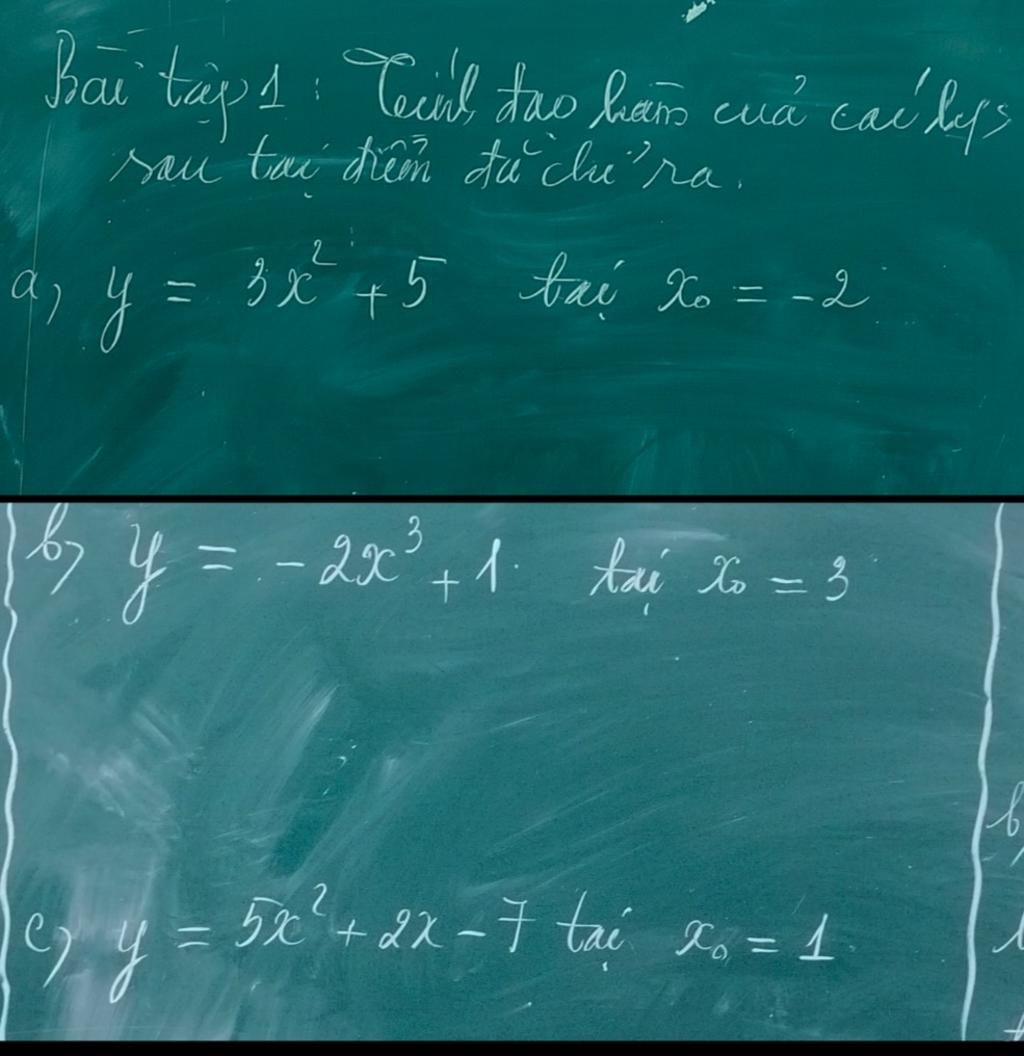 Bài tập 1 : Tính đạo hàm của các h/s
sau tại điểm đã chỉ ra.
a, y = 3x² + 5 tại x₀ = -2
b, y = -2x³ + 1 tại x₀ = 3
c, y = 5x² + 2x - 7 tại x₀ = 1
b,